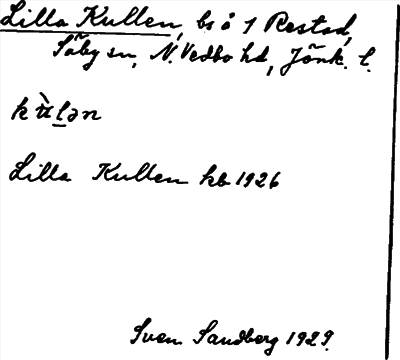 Lilla Kullen, bs å 1 Restad,
Säby sn, N. Vedbo hd, Jönk. l.
kùlən
Lilla Kullen kb 1926
Sven Sandberg 1929.